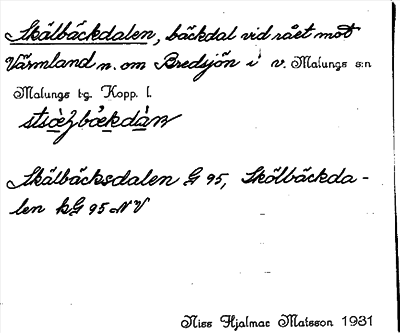 Skälbäckdalen, bäckdal vid rået mot
Värmland n. om Bredsjön i v. Malungs s:n
Malungs tg. Kopp. l.
Skälbäcksdalen G 95, Skölbäckda-
len kG 95 NV
Niss Hjalmar Matsson 1931